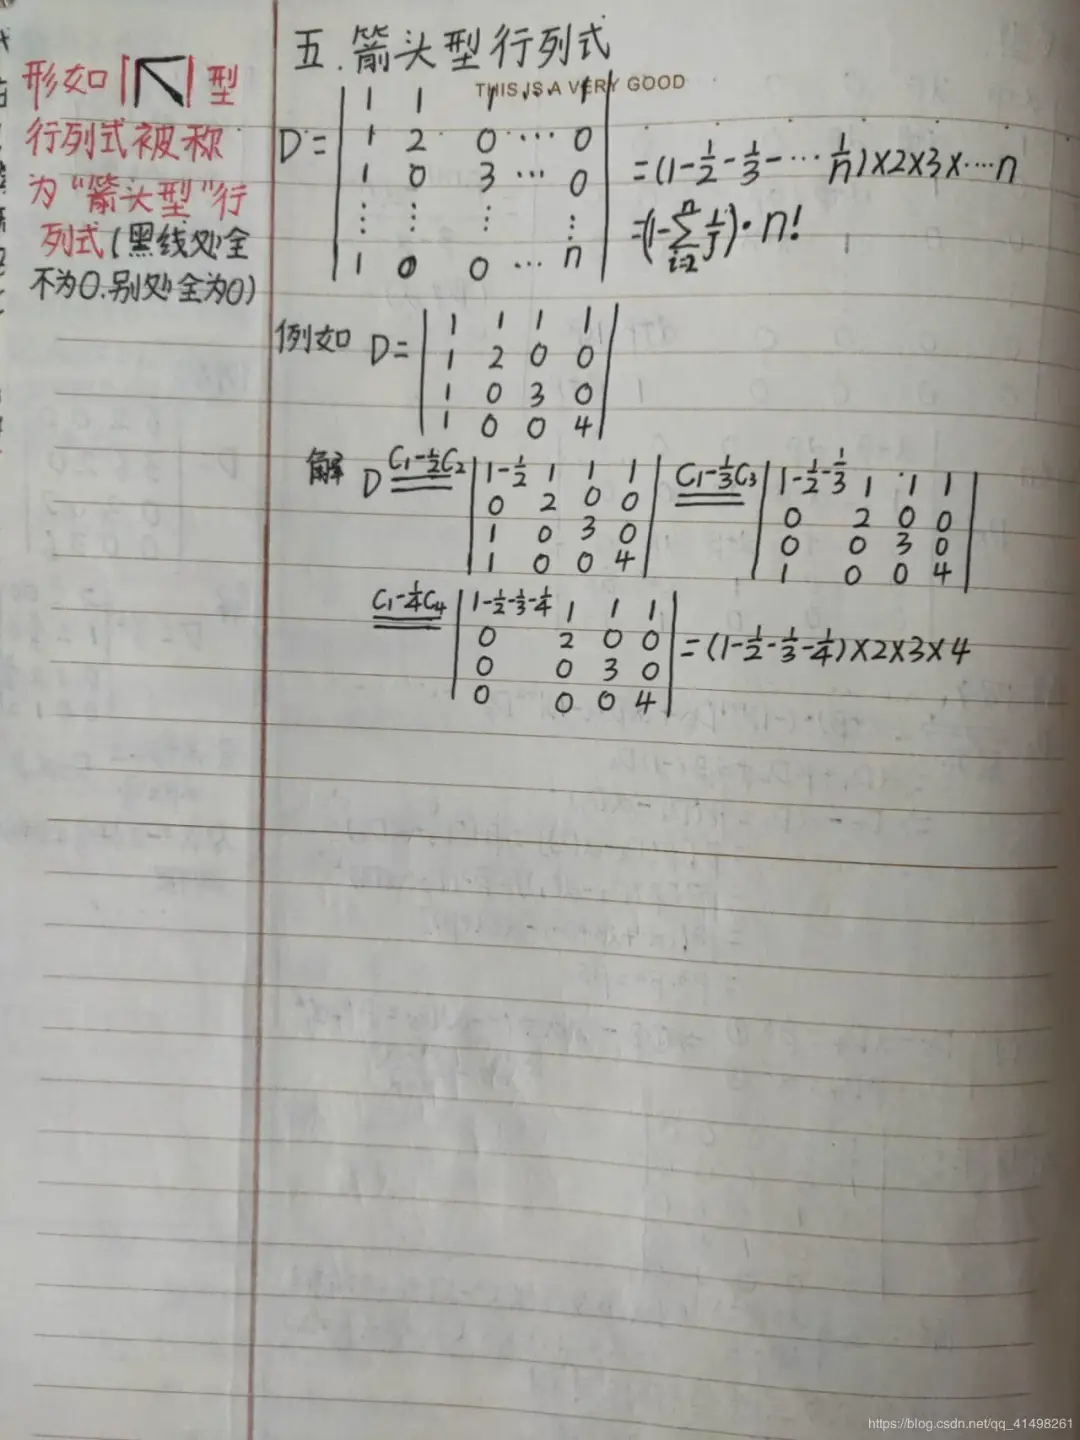 五.箭头型行列式
THIS IS A VERY GOOD
形如| |型
行列式被称
为“箭头型”行
列式(黑线处全
不为0.别处全为0)
D=
1 1 1 ... 1
1 2 0 ... 0
1 0 3 ... 0
⋮ ⋮ ⋮ ⋮
1 0 0 ... n
=(1-1/2-1/3-...1/n)×2×3×....n
=(1-∑_{i=2}^{n} 1/J)·n!
例如 D=
1 1 1 1
1 2 0 0
1 0 3 0
1 0 0 4
解 D C₁-1/2C₂
1-1/2 1 1 1
0 2 0 0
1 0 3 0
1 0 0 4
C₁-1/3C₃
1-1/2-1/3 1 1 1
0 2 0 0
0 0 3 0
1 0 0 4
C₁-1/4C₄
1-1/2-1/3-1/4 1 1 1
0 2 0 0
0 0 3 0
0 0 0 4
=(1-1/2-1/3-1/4)×2×3×4
https://blog.csdn.net/qq_41498261